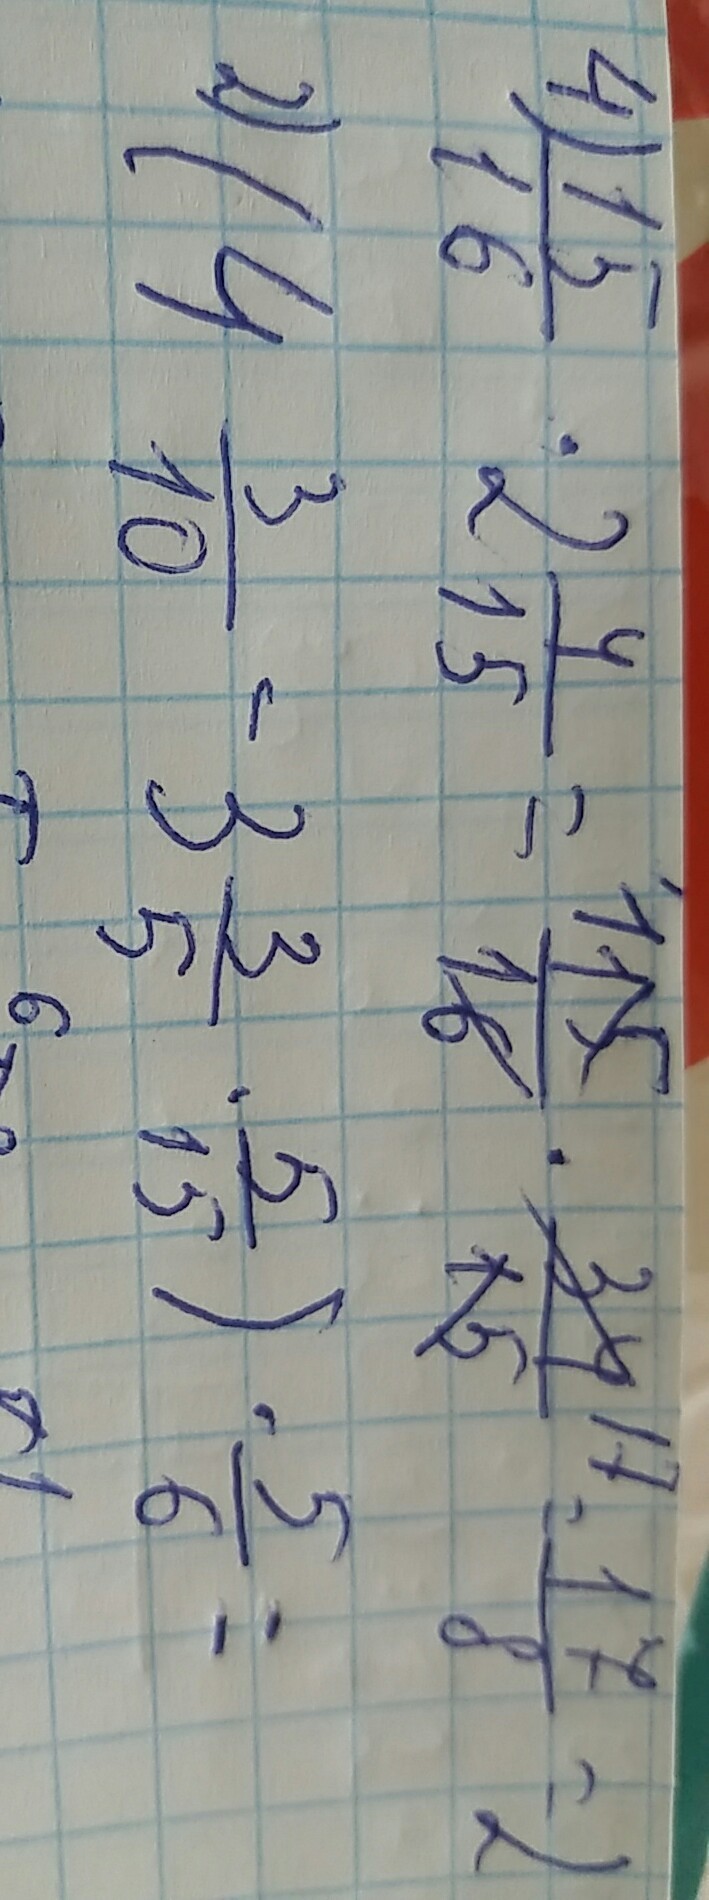 4) 15/16 · 2 4/15 = 15/16 · 34/15 17 = 17/8 = 2
2) (4 3/10 - 3 3/5 · 5/15) · 5/6 =